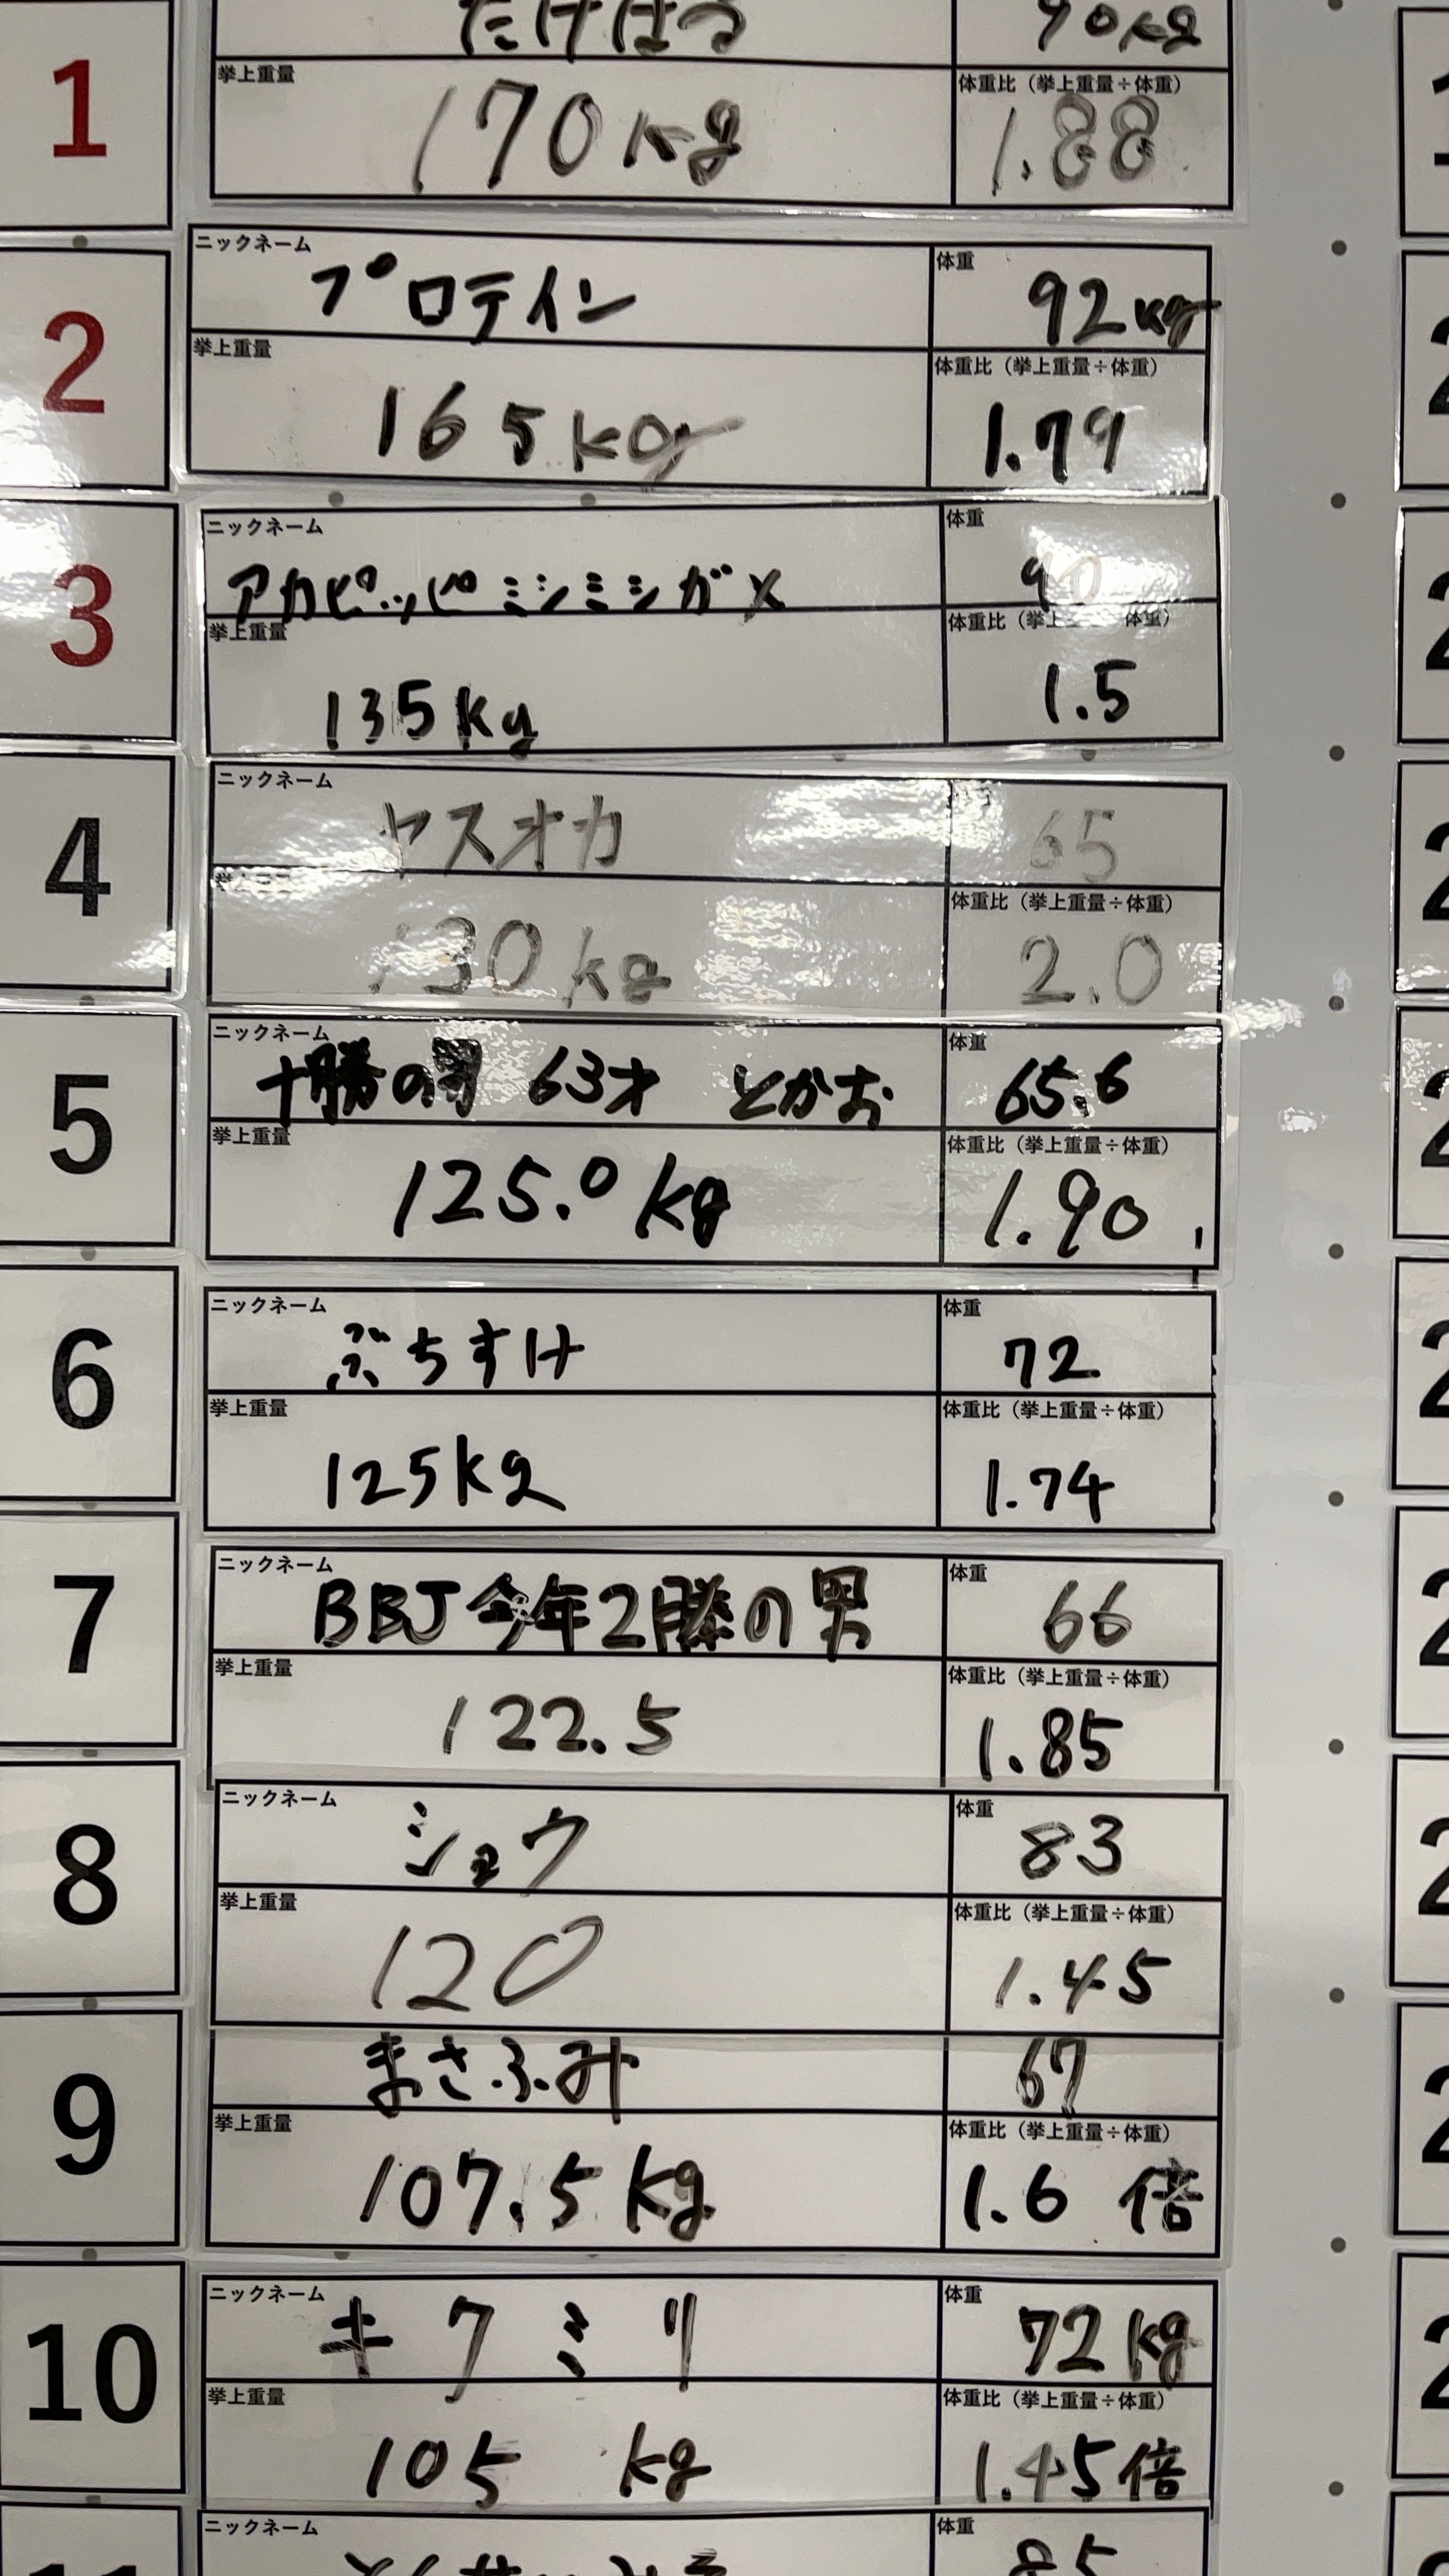 1
たけはる
90kg
挙上重量
体重比（挙上重量÷体重）
170kg
1.88
2
ニックネーム
体重
プロテイン
92kg
挙上重量
体重比（挙上重量÷体重）
165kg
1.79
3
ニックネーム
体重
アカピッピミシミシガメ
90
挙上重量
体重比（挙上重量÷体重）
135kg
1.5
4
ニックネーム
ヤスオカ
65
体重比（挙上重量÷体重）
130kg
2.0
5
ニックネーム
体重
十勝の男 63才 とかお
65.6
挙上重量
体重比（挙上重量÷体重）
125.0kg
1.90
6
ニックネーム
体重
ぶちすけ
72
挙上重量
体重比（挙上重量÷体重）
125kg
1.74
7
ニックネーム
体重
BBJ今年2勝の男
66
挙上重量
体重比（挙上重量÷体重）
122.5
1.85
8
ニックネーム
体重
ショウ
83
挙上重量
体重比（挙上重量÷体重）
120
1.45
9
まさふみ
67
挙上重量
体重比（挙上重量÷体重）
107.5kg
1.6倍
10
ニックネーム
体重
キクミリ
72kg
挙上重量
体重比（挙上重量÷体重）
105 kg
1.45倍
11
ニックネーム
体重
85